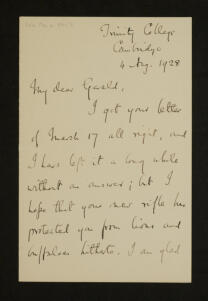 Trinity College
Cambridge
4 Aug. 1928
My dear Gerald,
I got your letter
of March 17 all right, and
I have left it a long while
without an answer; but I
hope that your new rifle has
protected you from lions and
buffaloes hitherto. I am glad